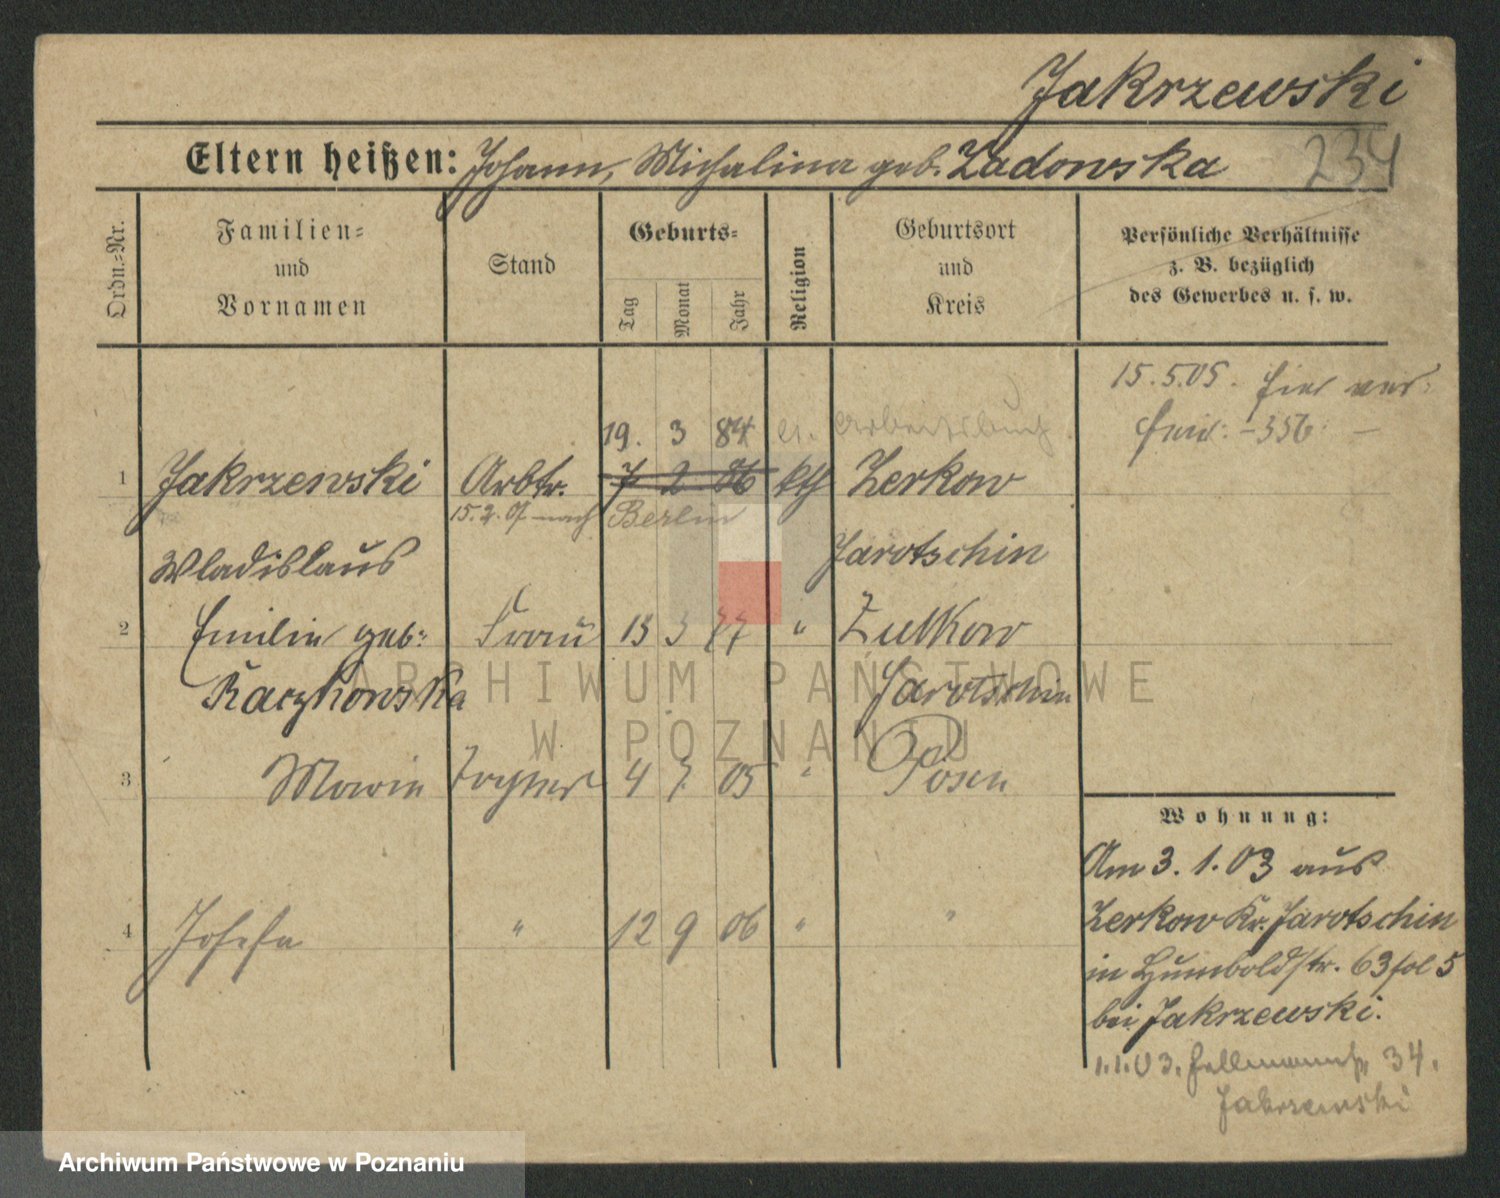 Jakrzewski
Eltern heißen: Johann, Michalina geb. Zadowska
234
Ordn.-Nr.
Familien- und Vornamen
Stand
Geburts-
Tag
Monat
Jahr
Religion
Geburtsort und Kreis
Persönliche Verhältnisse
z. B. bezüglich
des Gewerbes u. s. w.
15.5.05.
356
19. 3 84 Arbeitsbuch
1 Jakrzewski Arbtr. 7 2 86 kth Zerkow
15.2.07 nach Berlin
Wladislaus Jarotschin
2 Emilie geb: Frau 13 3 77 " Zulkow
Kaczkowska Jarotschin
3 Marie Tochter 4 7. 05 " Posen
4 Josefa " 12 9 06 " "
Wohnung:
Am 3.1.03 aus
Zerkow Kr. Jarotschin
in Humboldstr. 63
bei Jakrzewski.
1.1.03. 34.
Jakrzewski
ARCHIWUM PAŃSTWOWE
W POZNANIU
Archiwum Państwowe w Poznaniu